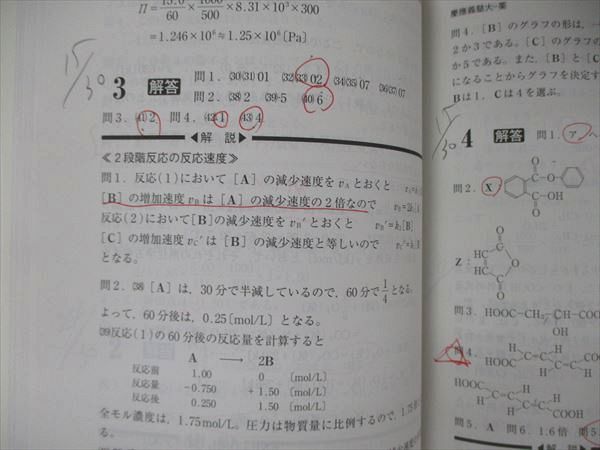 Π = 15.0/60 × 1000/500 × 8.31 × 10³ × 300
= 1.246 × 10⁶ ≒ 1.25 × 10⁶ 〔Pa〕
15/30
3 解答 問1. (30)(31) 01 (32)(33) 02 (34)(35) 07 (36)(37) 07
問2. (38) 2 (39)・5 (40) 6
問3. (41) 2 問4. (42) 1 (43) 4
◀解 説▶
≪2段階反応の反応速度≫
問1. 反応(1)において [A] の減少速度を vA とおくと
[B] の増加速度 vB は [A] の減少速度の2倍なので
反応(2)において[B]の減少速度を vB′ とおくと vB′=k₂[B]
[C] の増加速度 vC′ は [B] の減少速度と等しいので
となる。
問2. (38) [A] は, 30分で半減しているので, 60分で 1/4 となる。
よって, 60分後は, 0.25〔mol/L〕となる。
(39)反応(1)の60分後の反応量を計算すると
A ⟶ 2B
反応前 1.00 0 〔mol/L〕
反応量 −0.750 +1.50 〔mol/L〕
反応後 0.250 1.50 〔mol/L〕
全モル濃度は, 1.75mol/L。圧力は物質量に比例するので,
る。
慶應義塾大-薬
問4. [B] のグラフの形は,
2か3である。[C] のグラフの
か5である。また, [B] と [C
になることからグラフを決定す
Bは1, Cは4を選ぶ。
15/30
4 解答 問1. ア
問2. X:
O
C
O
C
OH
O
Z:
O
HC
C
O
HC
C
O
問3. HOOC-CH₂
OH
問4.
HOOC
COOH
HOOC
COOH
問5. A 問6. 1.6倍
◀解 説